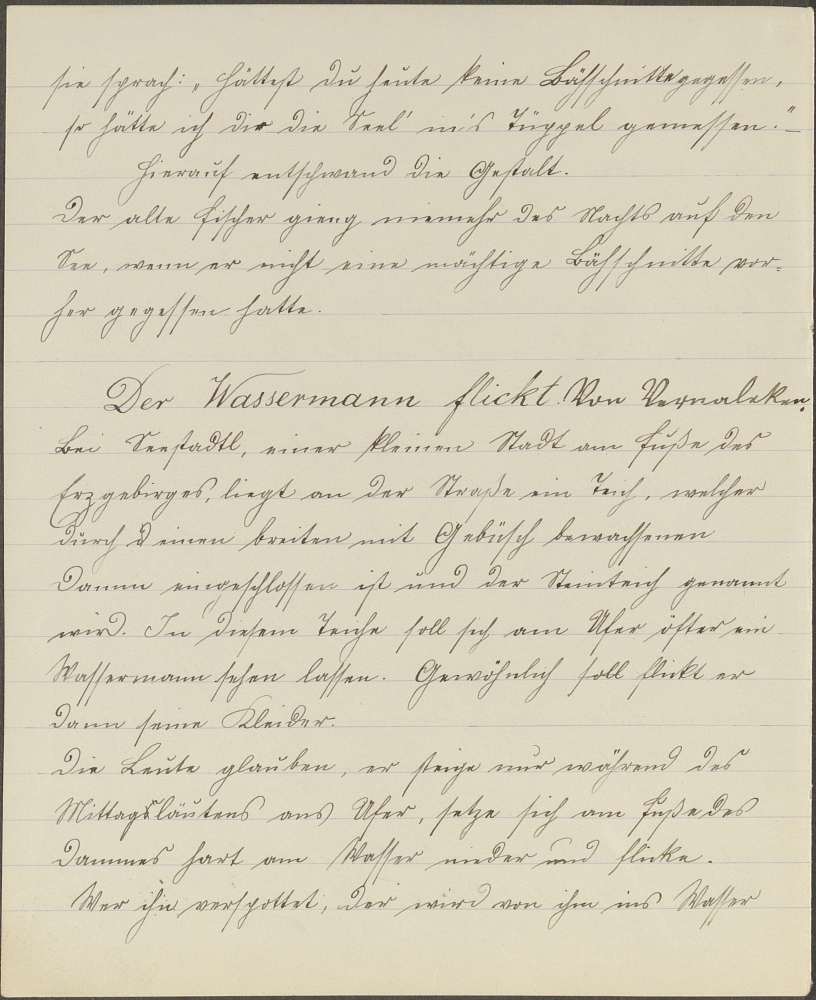 sie sprach: „Hättest Du heute keine Bähschnitte gegessen,
so hätte ich dir die Seel' in's Tüppel gemessen."
Hierauf entschwand die Gestalt.
Der alte Fischer gieng niemehr des Nachts auf den
See, wenn er nicht eine mächtige Bähschnitte vor-
her gegessen hatte.
Der Wassermann flickt. Von Vernaleken.
Bei Seestadtl, einer kleinen Stadt am Fuße des
Erzgebirges, liegt an der Straße ein Teich, welcher
durch d einen breiten mit Gebüsch bewachsenen
Damm eingeschlossen ist und der Steinteich genannt
wird. In diesem Teiche soll sich am Ufer öfter ein
Wassermann sehen lassen. Gewöhnlich soll flickt er
dann seine Kleider.
Die Leute glauben, er steige nur während des
Mittagsläutens ans Ufer, setze sich am Fuße des
Dammes hart am Wasser nieder und flicke.
Wer ihn verspottet, der wird von ihm ins Wasser